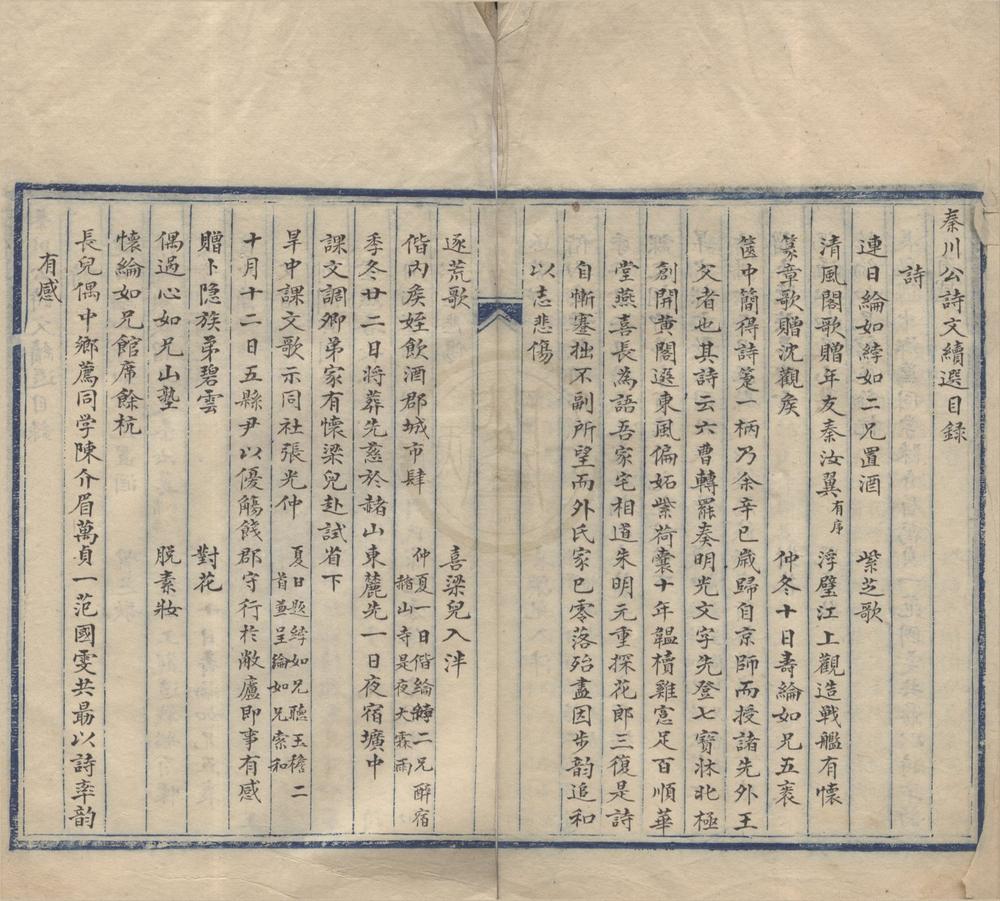 秦川公詩文續選目錄
詩
連日綸如綍如二兄置酒 紫芝歌
清風閣歌贈年友秦汝翼有序 浮璧江上觀造戰艦有懷
篆章歌贈沈觀侯 仲冬十日壽綸如兄五袠
篋中簡得詩箑一柄乃余辛巳歲歸自京師而授諸先外王
父者也其詩云六曹轉罷奏明光文字先登七寶牀北極
創開黃閣選東風偏妬紫荷囊十年韞櫝雞窓足百順華
堂燕喜長為語吾家宅相道朱明元重探花郎三復是詩
自慚蹇拙不副所望而外氏家已零落殆盡因步韵追和
以志悲傷
逐荒歌 喜梁兒入泮
偕內矦姪飲酒郡城市肆 仲夏一日偕綸綍二兄醉宿稽山寺是夜大霖雨
季冬廿二日將葬先慈於赭山東麓先一日夜宿壙中
課文調卿弟家有懷梁兒赴試省下
旱中課文歌示同社張光仲 夏日題綍如兄聽玉檐二首並呈綸如兄索和
十月十二日五縣尹以優觴餞郡守行於敝廬即事有感
贈卜隐族弟碧雲 對花
偶過心如兄山塾 脫素妝
懷綸如兄館席餘杭
長兒偶中鄉薦同学陳介眉萬貞一范國雯共最以詩率韵
有感